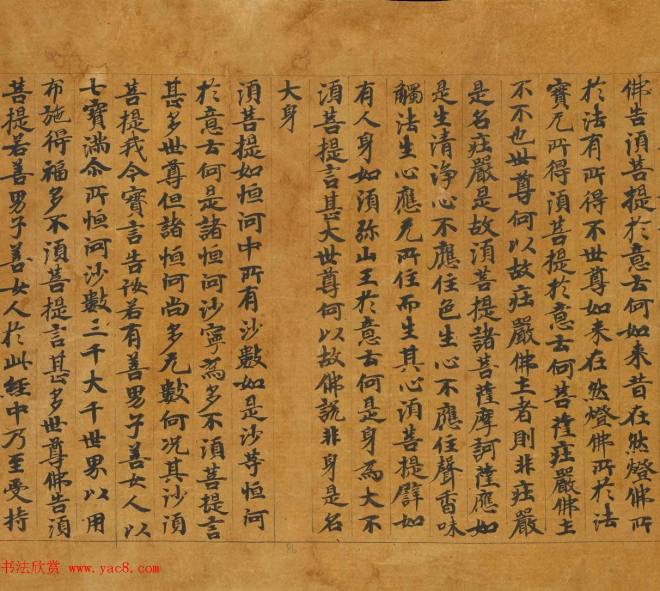 佛告湏菩提於意云何如来昔在然燈佛所
於法有所得不世尊如来在然燈佛所於法
實无所得湏菩提於意云何菩薩莊嚴佛土
不不也世尊何以故莊嚴佛土者則非莊嚴
是名莊嚴是故湏菩提諸菩薩摩訶薩應如
是生清淨心不應住色生心不應住聲香味
觸法生心應无所住而生其心湏菩提譬如
有人身如湏弥山王於意云何是身為大不
湏菩提言甚大世尊何以故佛說非身是名
大身
湏菩提如恒河中所有沙數如是沙等恒河
於意云何是諸恒河沙寧為多不湏菩提言
甚多世尊但諸恒河尚多无數何况其沙湏
菩提我今實言告汝若有善男子善女人以
七寶滿尒所恒河沙數三千大千世界以用
布施得福多不湏菩提言甚多世尊佛告湏
菩提若善男子善女人於此經中乃至受持
书法欣赏 www.yac8.com